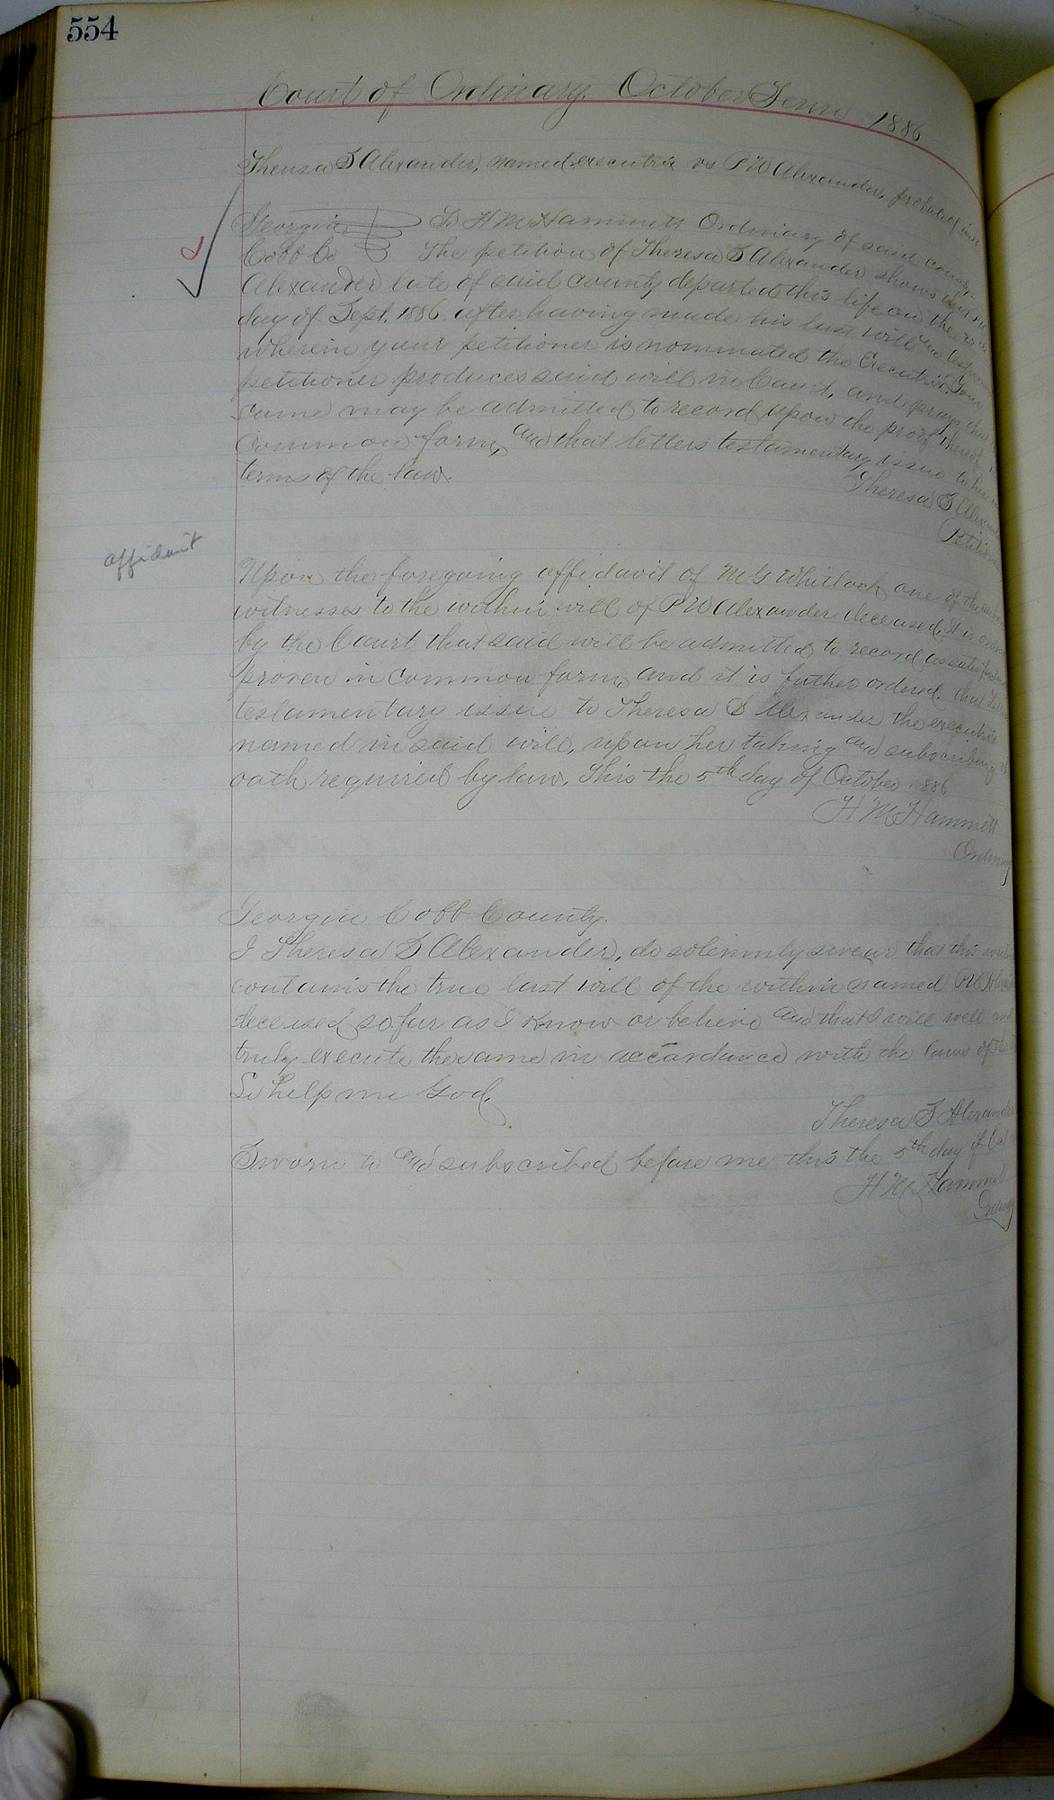 554
Court of Ordinary, October Term 1886
Theresa S Alexander, named executrix vs P W Alexander, probate of
Georgia To H M Hammett Ordinary of said county
Cobb Co The petition of Theresa S Alexander shows that
Alexander late of said county departed this life on the
day of Sept. 1886. after having made his last will and
wherein your petitioner is nominated the Executrix. Your
petitioner produces said will in Court, and prays that
same may be admitted to record upon the proof thereof in
Common form, and that letters testamentary issue to her in
terms of the law.
Theresa S
affidavit
Upon the foregoing affidavit of M G Whitlock one of the
witnesses to the within will of P W Alexander deceased. It is
by the Court that said will be admitted to record as
proven in common form, and it is futher ordered. that
testamentary issue to Theresa S Alexander the executrix
named in said will, upon her taking and subscribing
oath required by law. This the 5th day of October 1886
H M Hammett
Ordinary
Georgia Cobb County.
I Theresa S Alexander, do solemnly swear that this
contains the true last will of the within named P W
deceased so far as I know or believe and that I will well and
truly execute the same in accordance with the laws of
So help me God.
Theresa S Alexander
Sworn to and subscribed before me this the 5th day of
H M Hammett